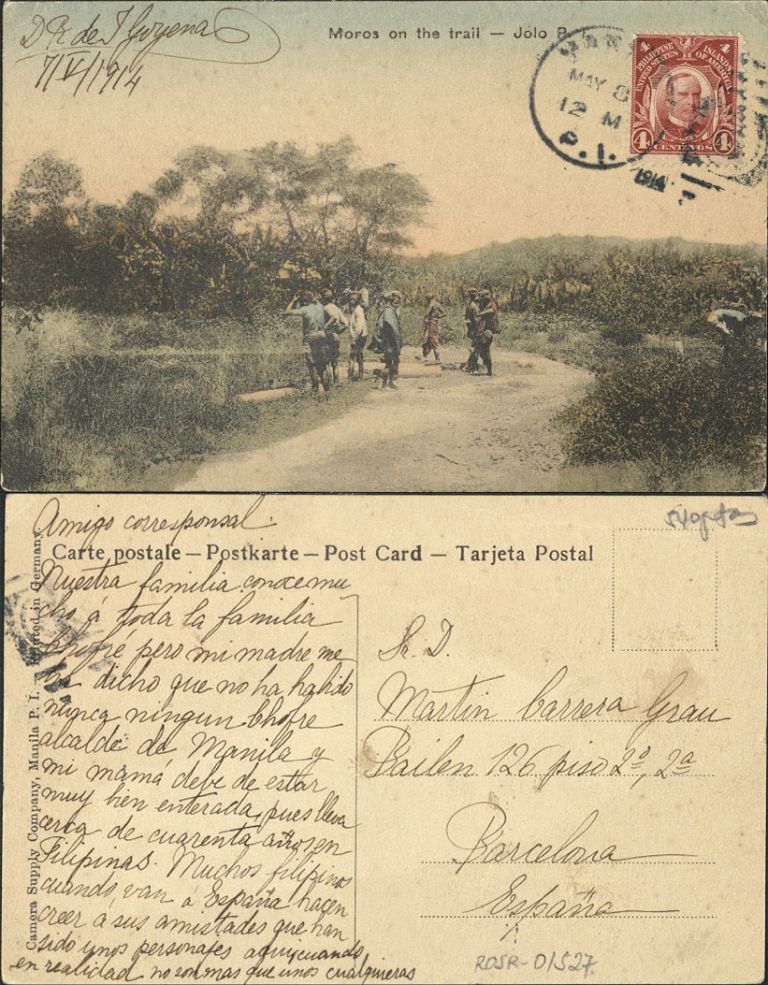 Dr. de J Goyena
7/V/1914
Moros on the trail — Jolo P. I.
MAY 8
12 M
P. I.
1914
PHILIPPINE ISLANDS
UNITED STATES OF AMERICA
4 4
4 CENTAVOS 4
Amigo corresponsal:
Carte postale – Postkarte – Post Card – Tarjeta Postal
Nuestra familia conoce mu
cho á toda la familia
Chofré pero mi madre me
ha dicho que no ha habido
nunca ningun Chofre
alcalde de Manila y
mi mamá debe de estar
muy bien enterada, pues lleva
cerca de cuarenta años en
Filipinas. Muchos filipinos
cuando van á España hacen
creer a sus amistades que han
sido unos personajes aqui cuando
en realidad no son mas que unos cualquieras
Camera Supply Company, Manila P. I. Printed in Germany
Sr. D.
Martin Carrera Grau
Bailen 126 piso 2º, 2ª
Barcelona
España
ROSR-01527